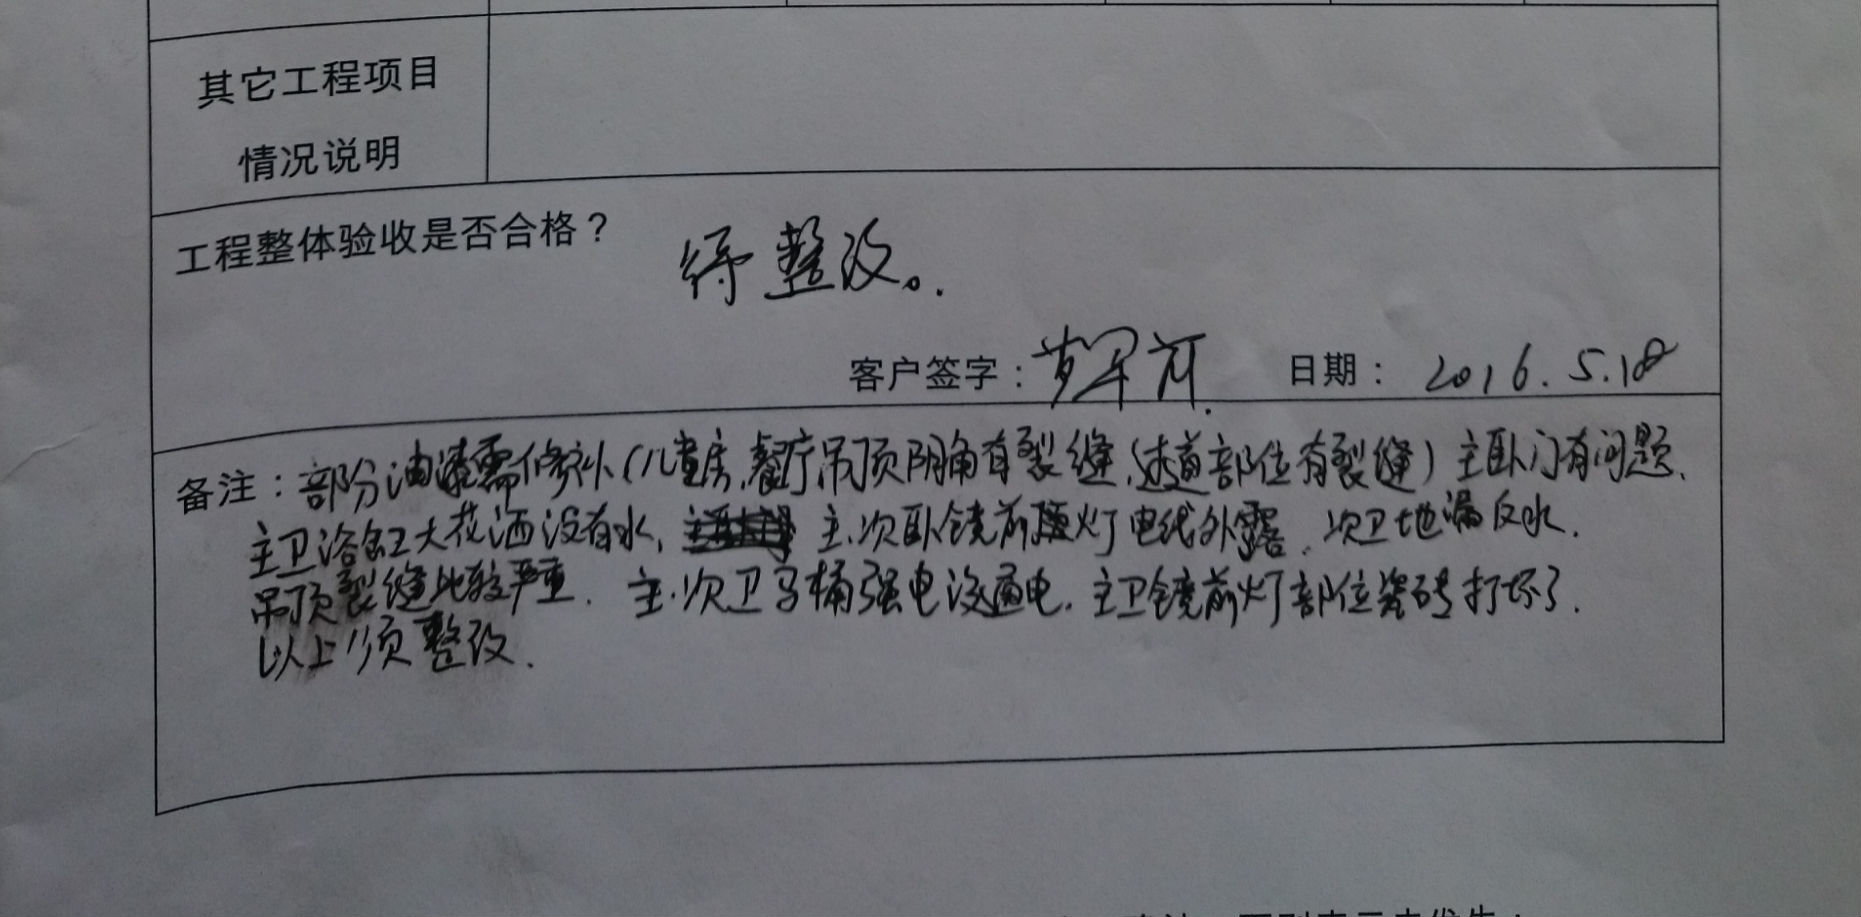 其它工程项目
情况说明
工程整体验收是否合格？ 待整改。
客户签字： 日期： 2016.5.18
备注：部份油漆需修补(儿童房,餐厅吊顶阴角有裂缝,过道部位有裂缝)主卧门有问题、
主卫浴缸大花洒没有水, 主.次卧镜前灯电线外露. 次卫地漏反水.
吊顶裂缝比较严重. 主.次卫马桶强电没通电. 主卫镜前灯部位瓷砖打坏了.
以上须整改.